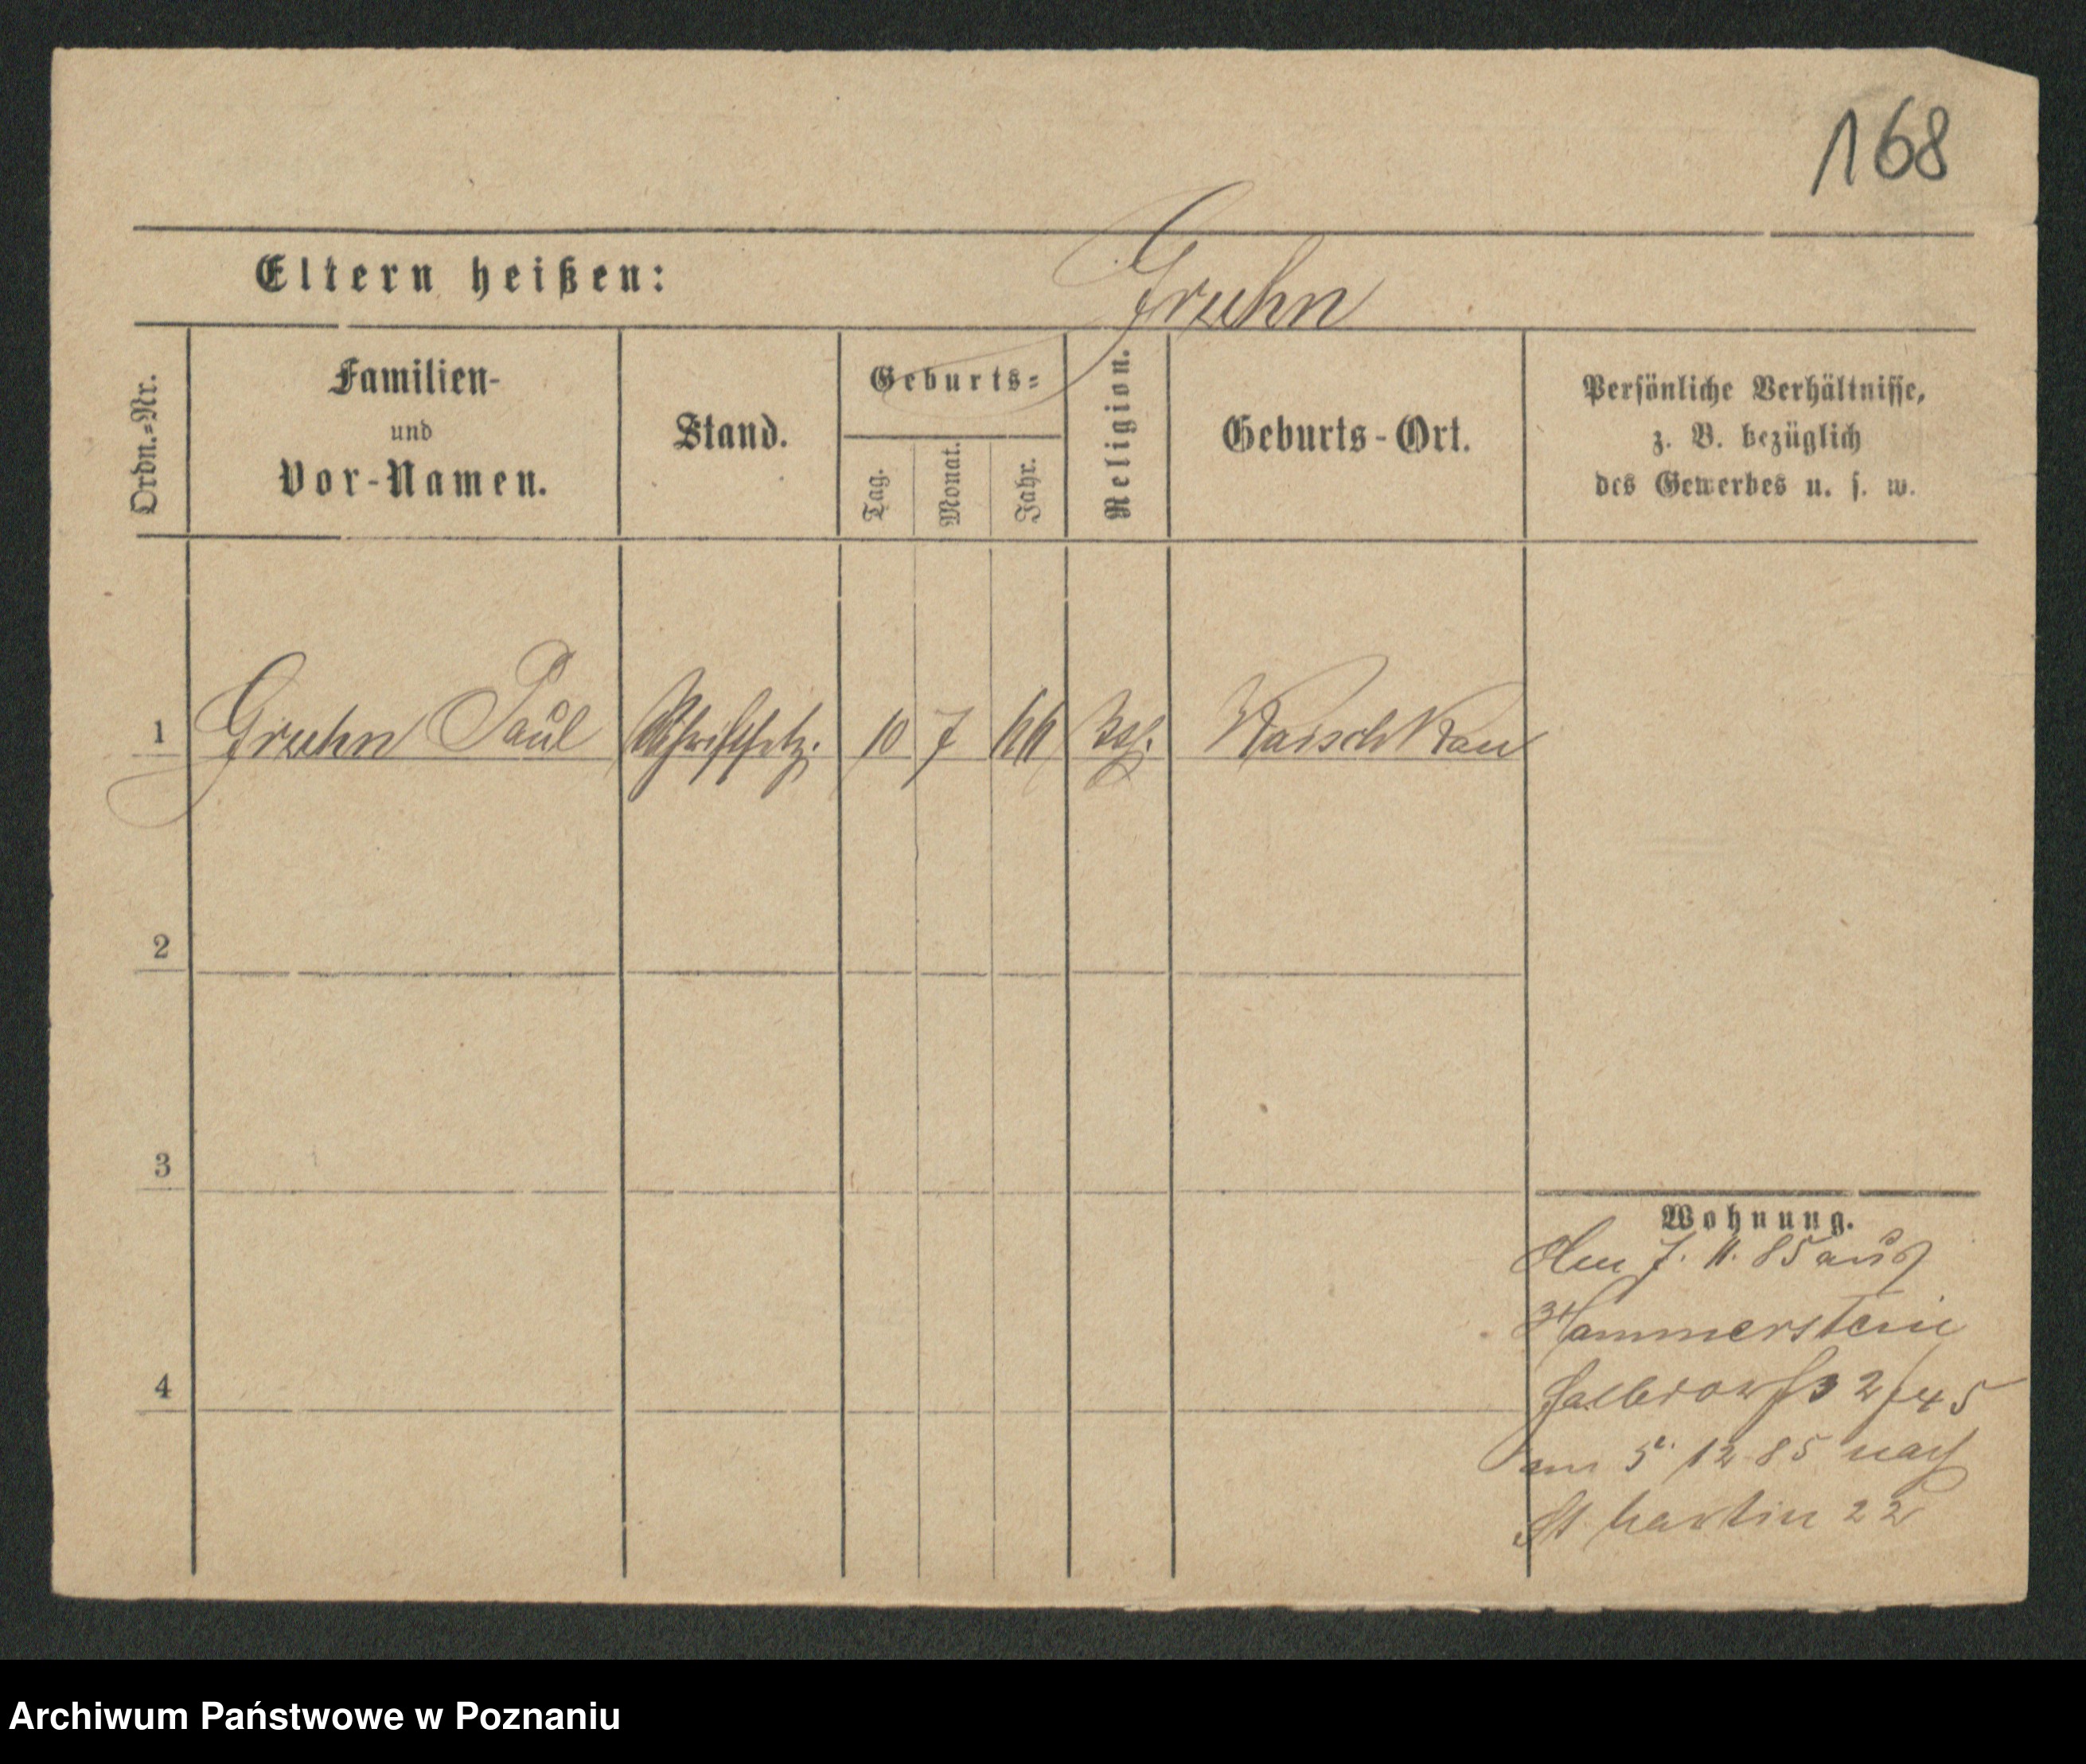 168
Eltern heißen: Gruhn
Ordn.=Nr.
Familien-
und
Vor-Namen.
Stand.
Geburts=
Tag.
Monat.
Jahr.
Religion.
Geburts-Ort.
Persönliche Verhältnisse,
z. B. bezüglich
des Gewerbes u. s. w.
1 Gruhn Paul Schriftsetz. 10 7 66
2
3
4
Wohnung.
Am 7. 11. 85 aus
Hammerstein
Halbdorfs 2/45
am 5t. 12 85 nach
St Martin 22
Archiwum Państwowe w Poznaniu